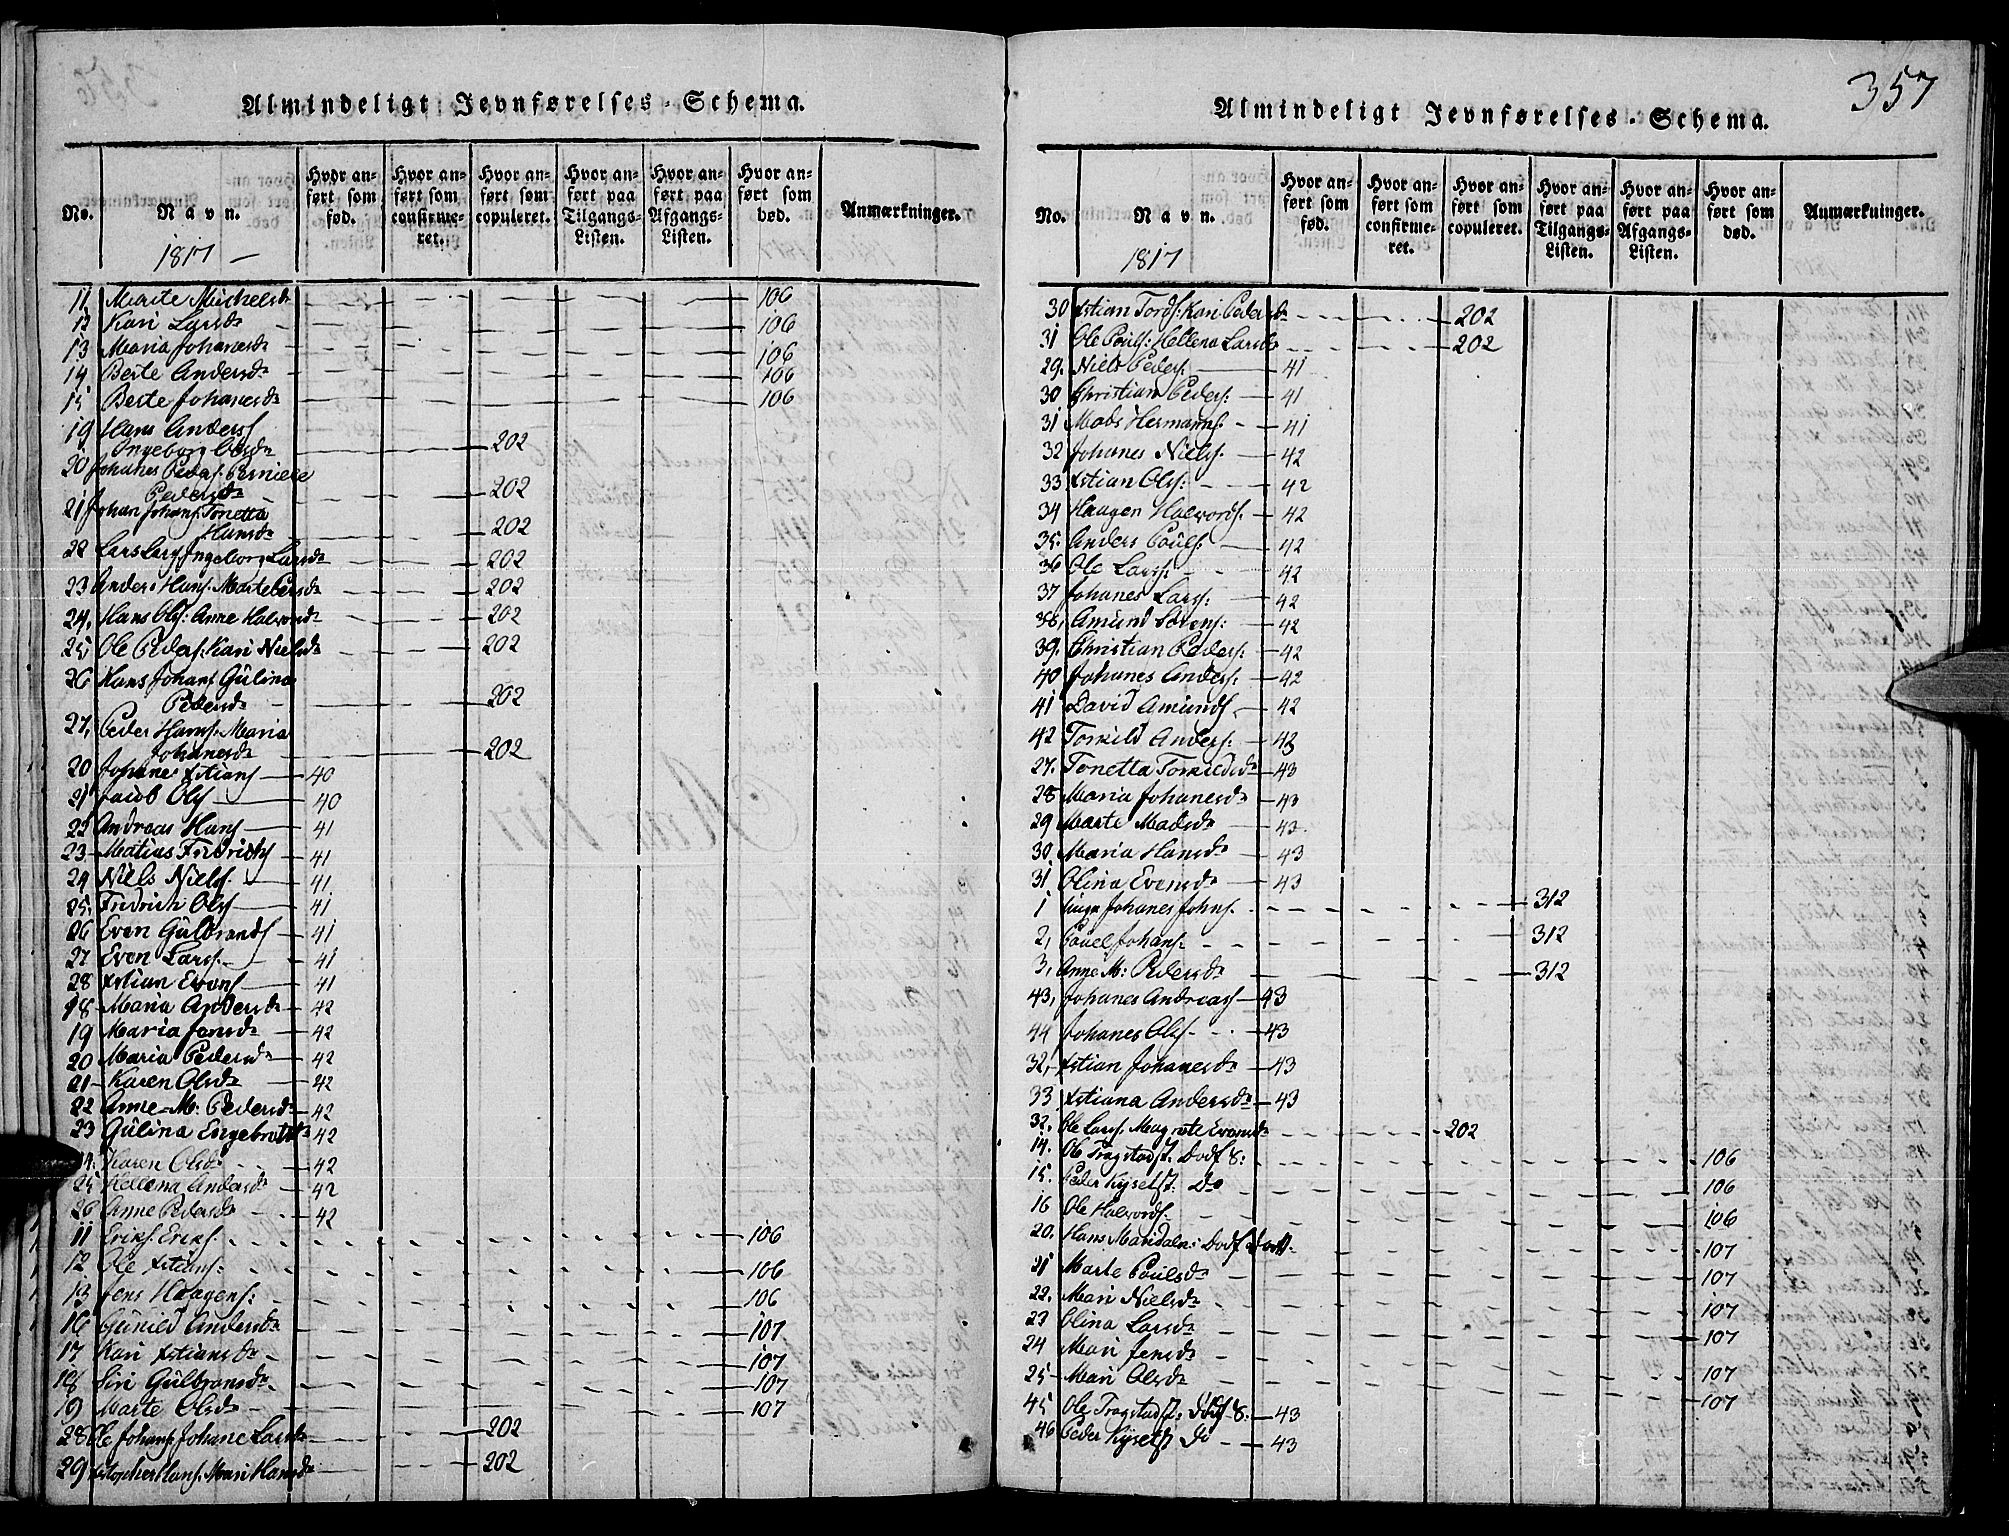 Almindeligt Jevnførelses-Schema.
No.
Navn.
1817 —
Hvor anført som fød.
Hvor anført som confirmeret.
Hvor anført som copuleret.
Hvor anført paa Tilgangs-Listen.
Hvor anført paa Afgangs-Listen.
Hvor anført som død.
Anmærkninger.
11 Marte Michelsd 106
12 Kari Larsd 106
13 Maria Johanesd 106
14 Berte Andersd 106
15 Berte Johanesd 106
19 Hans Anders
Ingeborg Olsd 202
20 Johanes Peders: Perniele
Pedersd 202
21 Johan Johans: Tonetta
Hansd 202
22 Lars Lars Ingeborg Larsd 202
23 Anders Hans: Marte Persd 202
24, Hans Ols: Anne Halvord 202
25 Ole Peders: Kari Nielsd 202
26 Hans Johans Gulina
Pedersd 202
27, Peder Hans: Maria
Johanesd 202
20 Johanes Xstians 40
21 Jacob Ols 40
22 Andreas Hans 41
23 Matias Fridrichs 41
24 Niels Niels 41
25, Fredrich Ols 41
26 Even Gulbrands 41
27 Even Lars 41
28 Xstian Evens 41
18 Maria Andersd 42
19 Maria Jansd 42
20 Maria Pedersd 42
21 Karen Olsd 42
22 Anne M: Pedersd 42
23 Gulina Engebrettsd 42
24. Karen Olsd 42
25 Hellena Andersd 42
26 Anne Pedersd 42
11 Eriks: Eriks: 106
12 Ole Xstians: 106
13 Jens Haagens: 106
16 Gunild Andersd 107
17 Kari Xstiansd 107
18 Siri Gulbransd 107
19 Marte Olsd 107
28 Ole Johans: Johane Larsd 202
29 Xstopher Hans. Mari Hansd 202
357
Almindeligt Jevnførelses-Schema.
No.
Navn.
1817
Hvor anført som fød.
Hvor anført som confirmeret.
Hvor anført som copuleret.
Hvor anført paa Tilgangs-Listen.
Hvor anført paa Afgangs-Listen.
Hvor anført som død.
Anmærkninger.
30 Xstian Tords: Kari Pedersd 202
31 Ole Pouls: Hellena Larsd 202
29. Niels Peders. 41
30 Christian Peders: 41
31 Mads Hermanns: 41
32 Johanes Niels. 42
33 Xstian Ols: 42
34 Haagen Halvords. 42
35. Anders Pouls: 42
36 Ole Lars: 42
37 Johanes Lars: 42
38, Amund Sorens: 42
39. Christian Peders: 42
40 Johanes Anders: 42
41 David Amunds 42
42 Torkild Anders: 43
27. Tonetta Torkildsd 43
28 Maria Johanesd 43
29 Marte Madsd 43
30 Maria Hansd 43
31 Olina Evensd 43
1 Johanes Johns. 312
2, Pouel Johans: 312
3, Anne M: Pedersd 312
43, Johanes Andreas 43
44 Johanes Ols 43
32, Xstian Johanesd 43
33 Xstiana Andersd 43
32. Ole Lars. Magrete Evensd 202
14. Ole Trogstads: Dødf 8: 106
15. Peder Kysels: Do 106
16 Ole Halvords: 106
20. Hans Maridalen: Dødf 107
21 Marte Poulsd 107
22. Mari Nielsd 107
23 Olina Larsd 107
24 Mari Jensd 107
25 Mari Olsd 107
45 Ole Trogstads: Dødf 8: 43
46 Peder Kysels Do 43